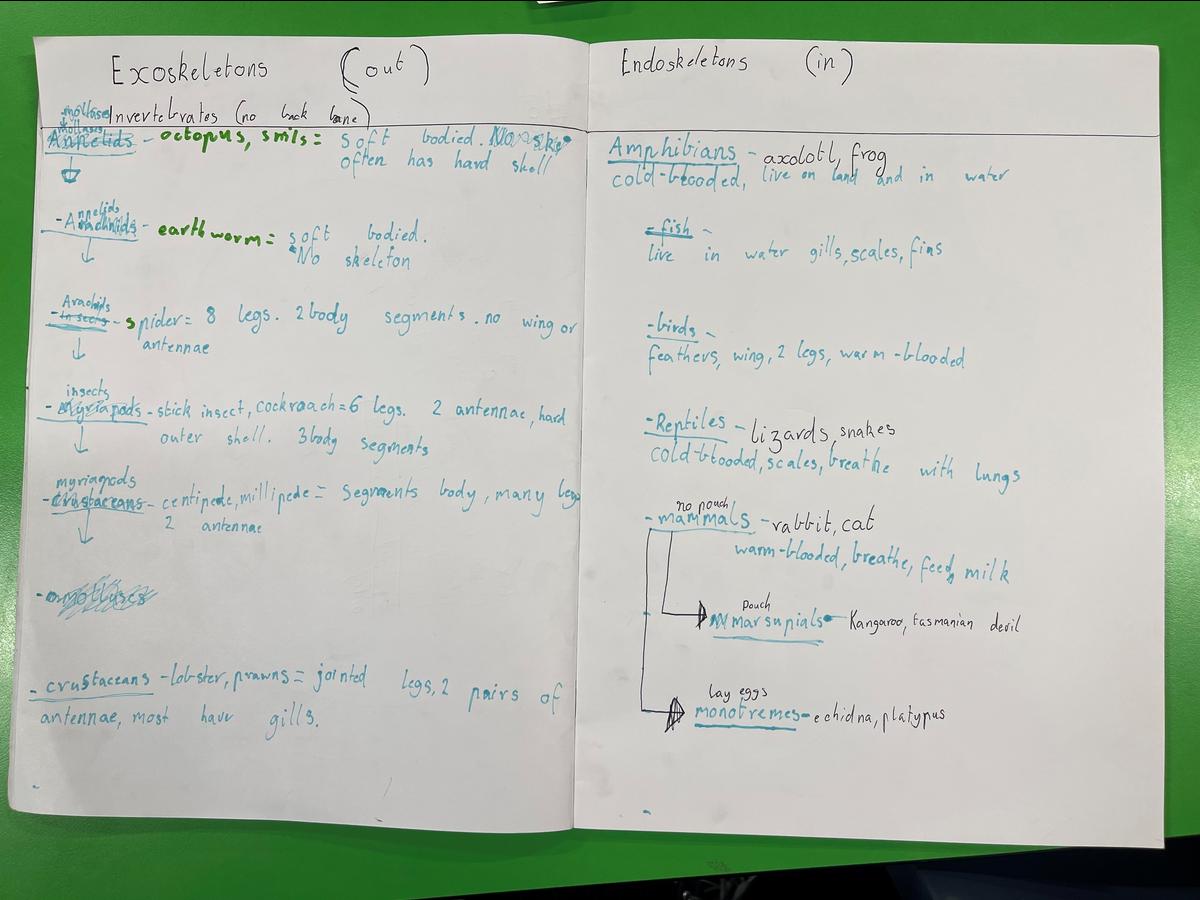 Exoskeletons (out)
Invertebrates (no back bone)
mollases
mollases
Annelids - octopus, snils = soft bodied.
often has hard shell
Annelids
- Arachnids - earthworm = soft bodied.
No skeleton
Arachids
- insects - spider = 8 legs. 2 body segments. no wing or
antennae
insects
- Myriapods - stick insect, cockroach = 6 legs. 2 antennae, hard
outer shell. 3 body segments
myriapods
- crustaceans - centipede, millipede = segments body, many legs
2 antennae
- mollases
- crustaceans - lobster, prawns = jointed legs, 2 pairs of
antennae, most have gills.
Endoskeletons (in)
Amphibians - axolotl, frog
cold-blooded, live on land and in water
- fish -
live in water gills, scales, fins
- birds -
feathers, wing, 2 legs, warm-blooded
- Reptiles - lizards, snakes
cold-blooded, scales, breathe with lungs
no pouch
- mammals - rabbit, cat
warm-blooded, breathe, feed, milk
pouch
marsupials - Kangaroo, tasmanian devil
lay eggs
monotremes - echidna, platypus